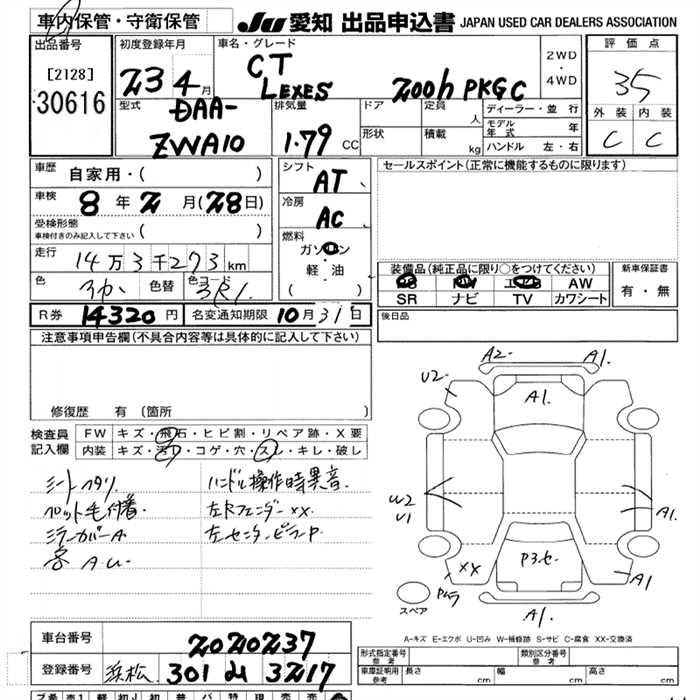 車内保管・守衛保管
JU 愛知 出品申込書 JAPAN USED CAR DEALERS ASSOCIATION
出品番号
[2128]
30616
初度登録年月
23 4月
車名・グレード
CT
LEXES 200h PKG C
2WD
・
4WD
評価点
3.5
外装 内装
C C
型式
DAA-
ZWA10
排気量
1.79 CC
ドア
定員 人
形状
積載 kg
ディーラー・並行
モデル年式 年
ハンドル 左・右
車歴 自家用・( )
車検 8年2月(28日)
受検形態
車検付きのみ記入して下さい ( )
走行 14万3千273km
色 色替 色コード
シフト
AT
冷房
AC
燃料
ガソリン
軽・油
( )
セールスポイント(正常に機能するものに限ります)
装備品(純正品に限り○をつけてください)
PS PW エアB AW
SR ナビ TV カワシート
新車保証書
有・無
後日品
R券 14320円 名変通知期限 10月31日
注意事項申告欄(不具合内容等は具体的に記入して下さい)
修復歴 有 (箇所 )
検査員
記入欄
FW キズ・飛石・ヒビ割・リペア跡・X要
内装 キズ・汚れ・コゲ・穴・スレ・キレ・破し
シートヘタリ
ペット毛付着
ミラーカバーA
各A.U-
ハンドル操作時異音
左Rフェンダー XX
左センターピラーP
A2- A1.
U2-
A1.
W2
U1
A1.
XX
P3.セ.
A1
A1.
スペア
A-キズ E-エクボ U-凹み W-補修跡 S-サビ C-腐食 XX-交換済
車台番号 2020237
登録番号 浜松 301 み 3217
形式指定番号
参考
類別区分番号
参考
車庫証明用
参考
長さ cm 幅 cm 高さ cm